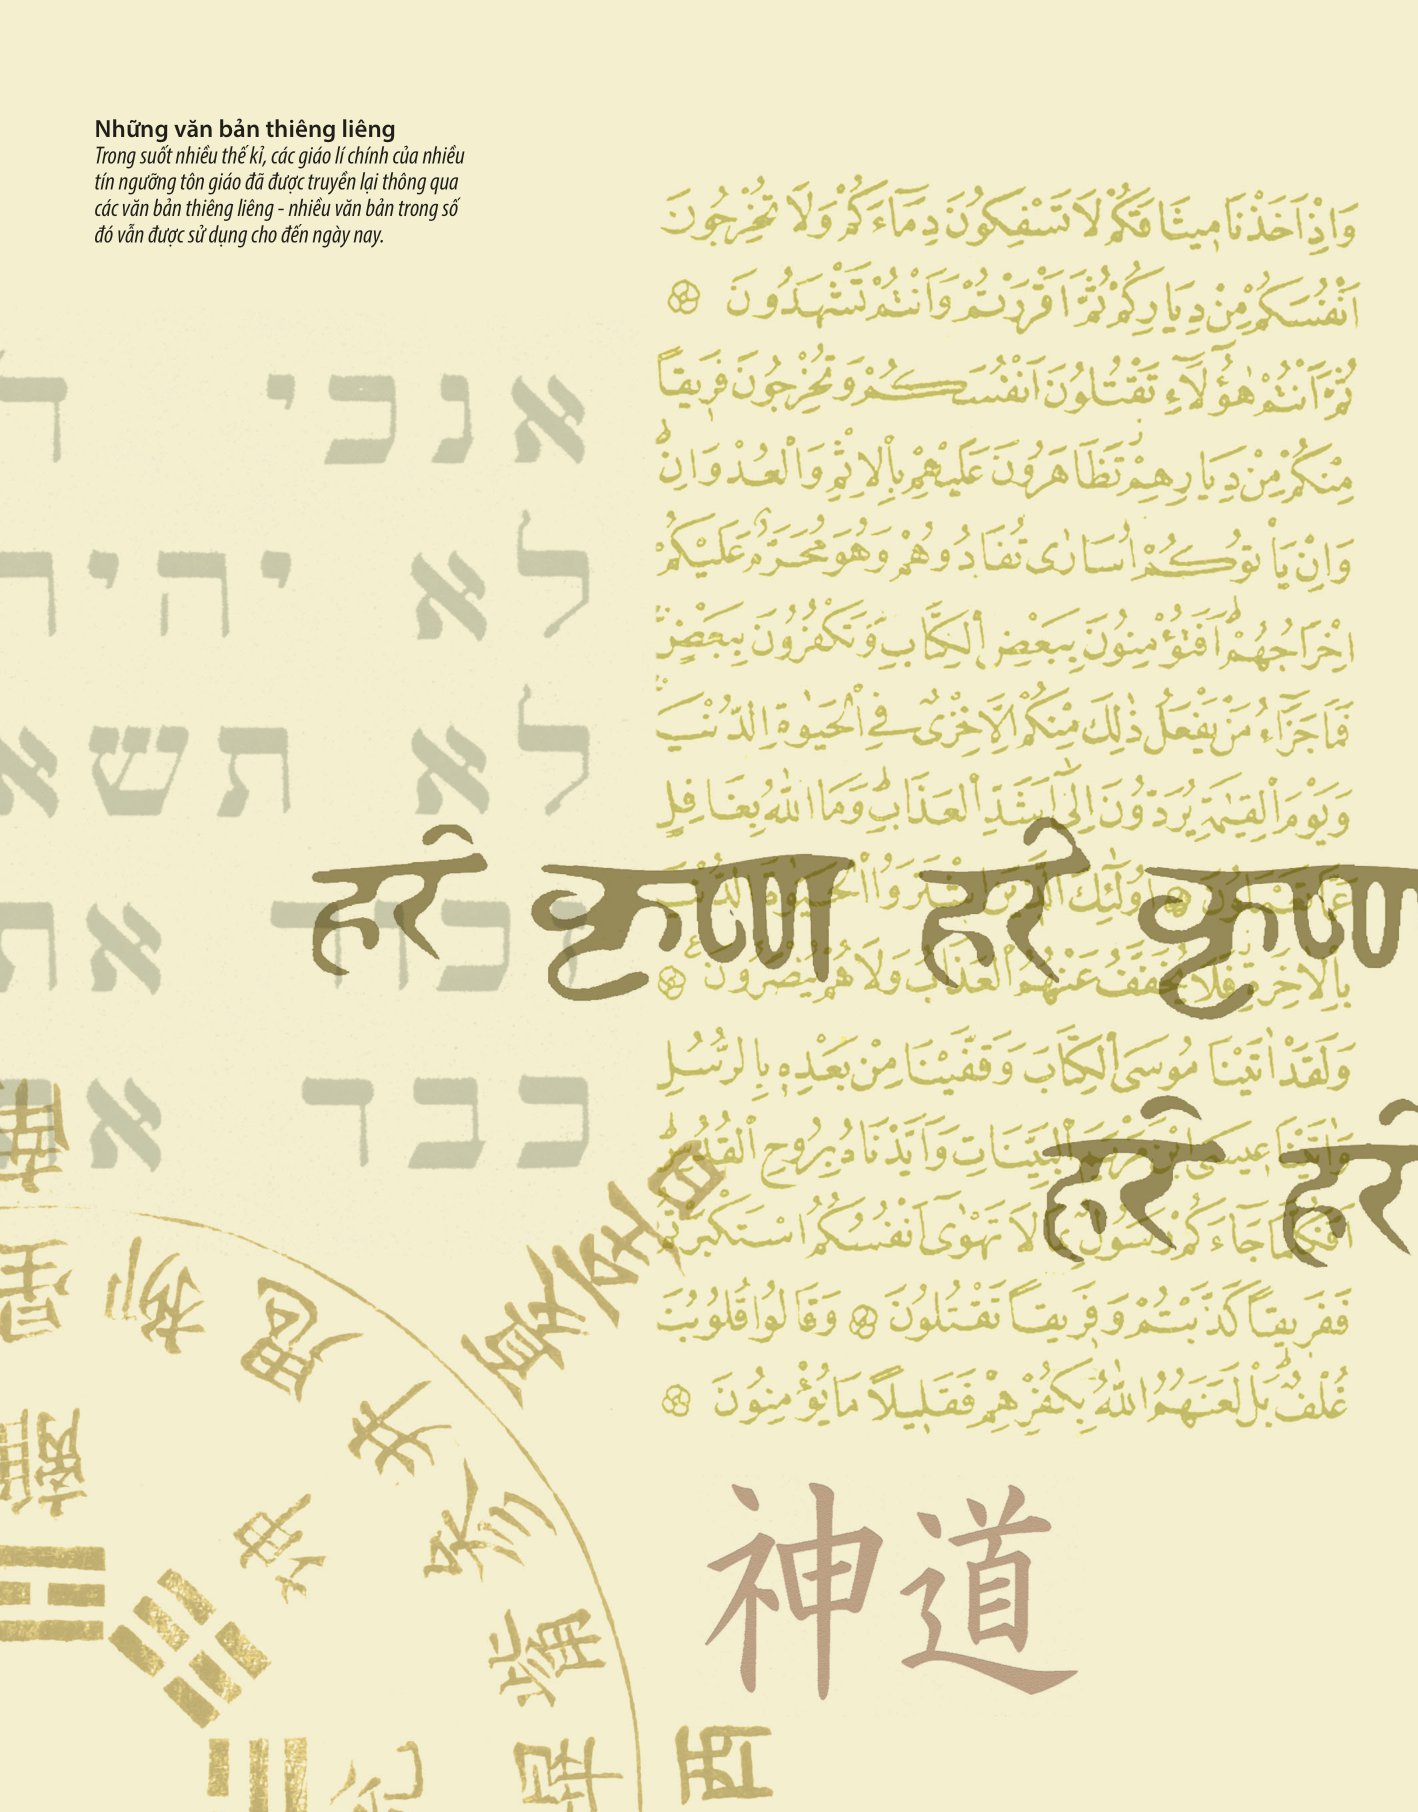 Những văn bản thiêng liêng
Trong suốt nhiều thế kỉ, các giáo lí chính của nhiều
tín ngưỡng tôn giáo đã được truyền lại thông qua
các văn bản thiêng liêng - nhiều văn bản trong số
đó vẫn được sử dụng cho đến ngày nay.
אנכי
לא יהי
לא תשא
זכור את
כבד את
وَاِذْ اَخَذْنَا مِيثَاقَكُمْ لَا تَسْفِكُونَ دِمَٓاءَكُمْ وَلَا تُخْرِجُونَ
اَنْفُسَكُمْ مِنْ دِيَارِكُمْ ثُمَّ اَقْرَرْتُمْ وَاَنْتُمْ تَشْهَدُونَ
ثُمَّ اَنْتُمْ هٰٓؤُ۬لَٓاءِ تَقْتُلُونَ اَنْفُسَكُمْ وَتُخْرِجُونَ فَرِيقاً
مِنْكُمْ مِنْ دِيَارِهِمْ تَظَاهَرُونَ عَلَيْهِمْ بِالْاِثْمِ وَالْعُدْوَانِ
وَاِنْ يَأْتُوكُمْ اُسَارٰى تُفَادُوهُمْ وَهُوَ مُحَرَّمٌ عَلَيْكُمْ
اِخْرَاجُهُمْ اَفَتُؤْمِنُونَ بِبَعْضِ الْكِتَابِ وَتَكْفُرُونَ بِبَعْضٍ
فَمَا جَزَٓاءُ مَنْ يَفْعَلُ ذٰلِكَ مِنْكُمْ اِلَّا خِزْىٌ فِي الْحَيٰوةِ الدُّنْيَا
وَيَوْمَ الْقِيٰمَةِ يُرَدُّونَ اِلٰٓى اَشَدِّ الْعَذَابِ وَمَا اللّٰهُ بِغَافِلٍ
عَمَّا تَعْمَلُونَ اُولٰٓئِكَ الَّذِينَ اشْتَرَوُا الْحَيٰوةَ الدُّنْيَا
بِالْاٰخِرَةِ فَلَا يُخَفَّفُ عَنْهُمُ الْعَذَابُ وَلَا هُمْ يُنْصَرُونَ
وَلَقَدْ اٰتَيْنَا مُوسَى الْكِتَابَ وَقَفَّيْنَا مِنْ بَعْدِهِ بِالرُّسُلِ
وَاٰتَيْنَا عِيسَى ابْنَ مَرْيَمَ الْبَيِّنَاتِ وَاَيَّدْنَاهُ بِرُوحِ الْقُدُسِ
اَفَكُلَّمَا جَٓاءَكُمْ رَسُولٌ بِمَا لَا تَهْوٰٓى اَنْفُسُكُمُ اسْتَكْبَرْتُمْ
فَفَرِيقاً كَذَّبْتُمْ وَفَرِيقاً تَقْتُلُونَ وَقَالُوا قُلُوبُنَا
غُلْفٌ بَلْ لَعَنَهُمُ اللّٰهُ بِكُفْرِهِمْ فَقَلِيلاً مَا يُؤْمِنُونَ
हरे कृष्ण हरे कृष्ण
हरे हरे
星
柳
鬼
井
參
觜
畢
離
坤
兌
酉
神道